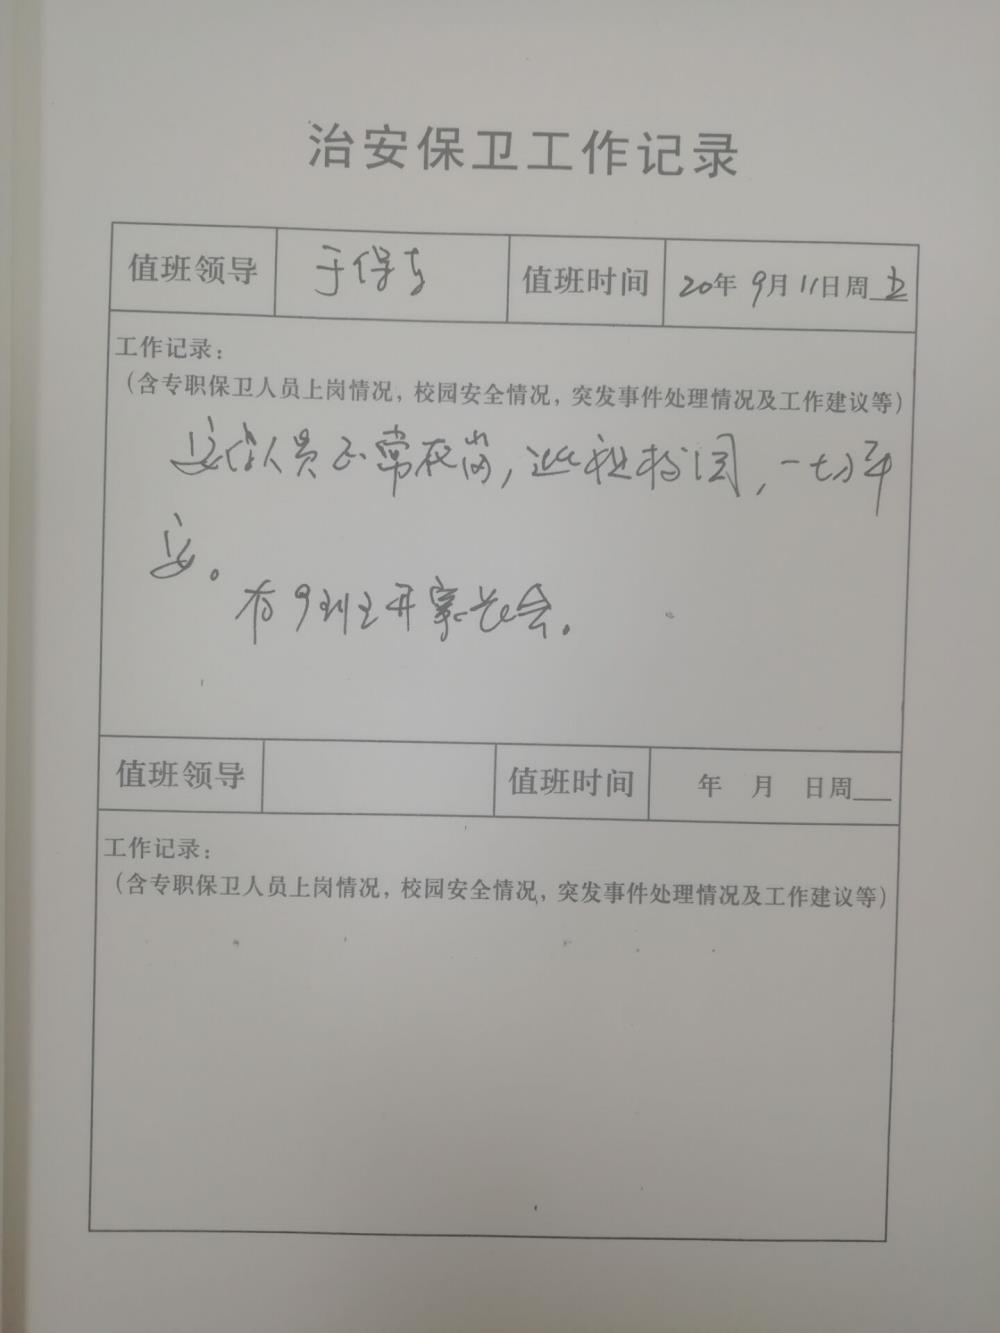 治安保卫工作记录
值班领导 于保 值班时间 20年9月11日周五
工作记录：
（含专职保卫人员上岗情况，校园安全情况，突发事件处理情况及工作建议等）
安保人员正常在岗，巡视校园，一切平
安。
有9班开家长会。
值班领导 值班时间 年 月 日周
工作记录：
（含专职保卫人员上岗情况，校园安全情况，突发事件处理情况及工作建议等）